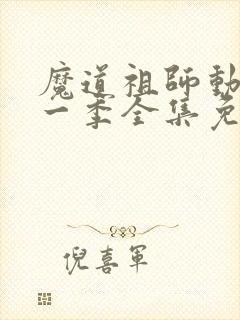 魔道祖师動
一季全集免
倪喜軍